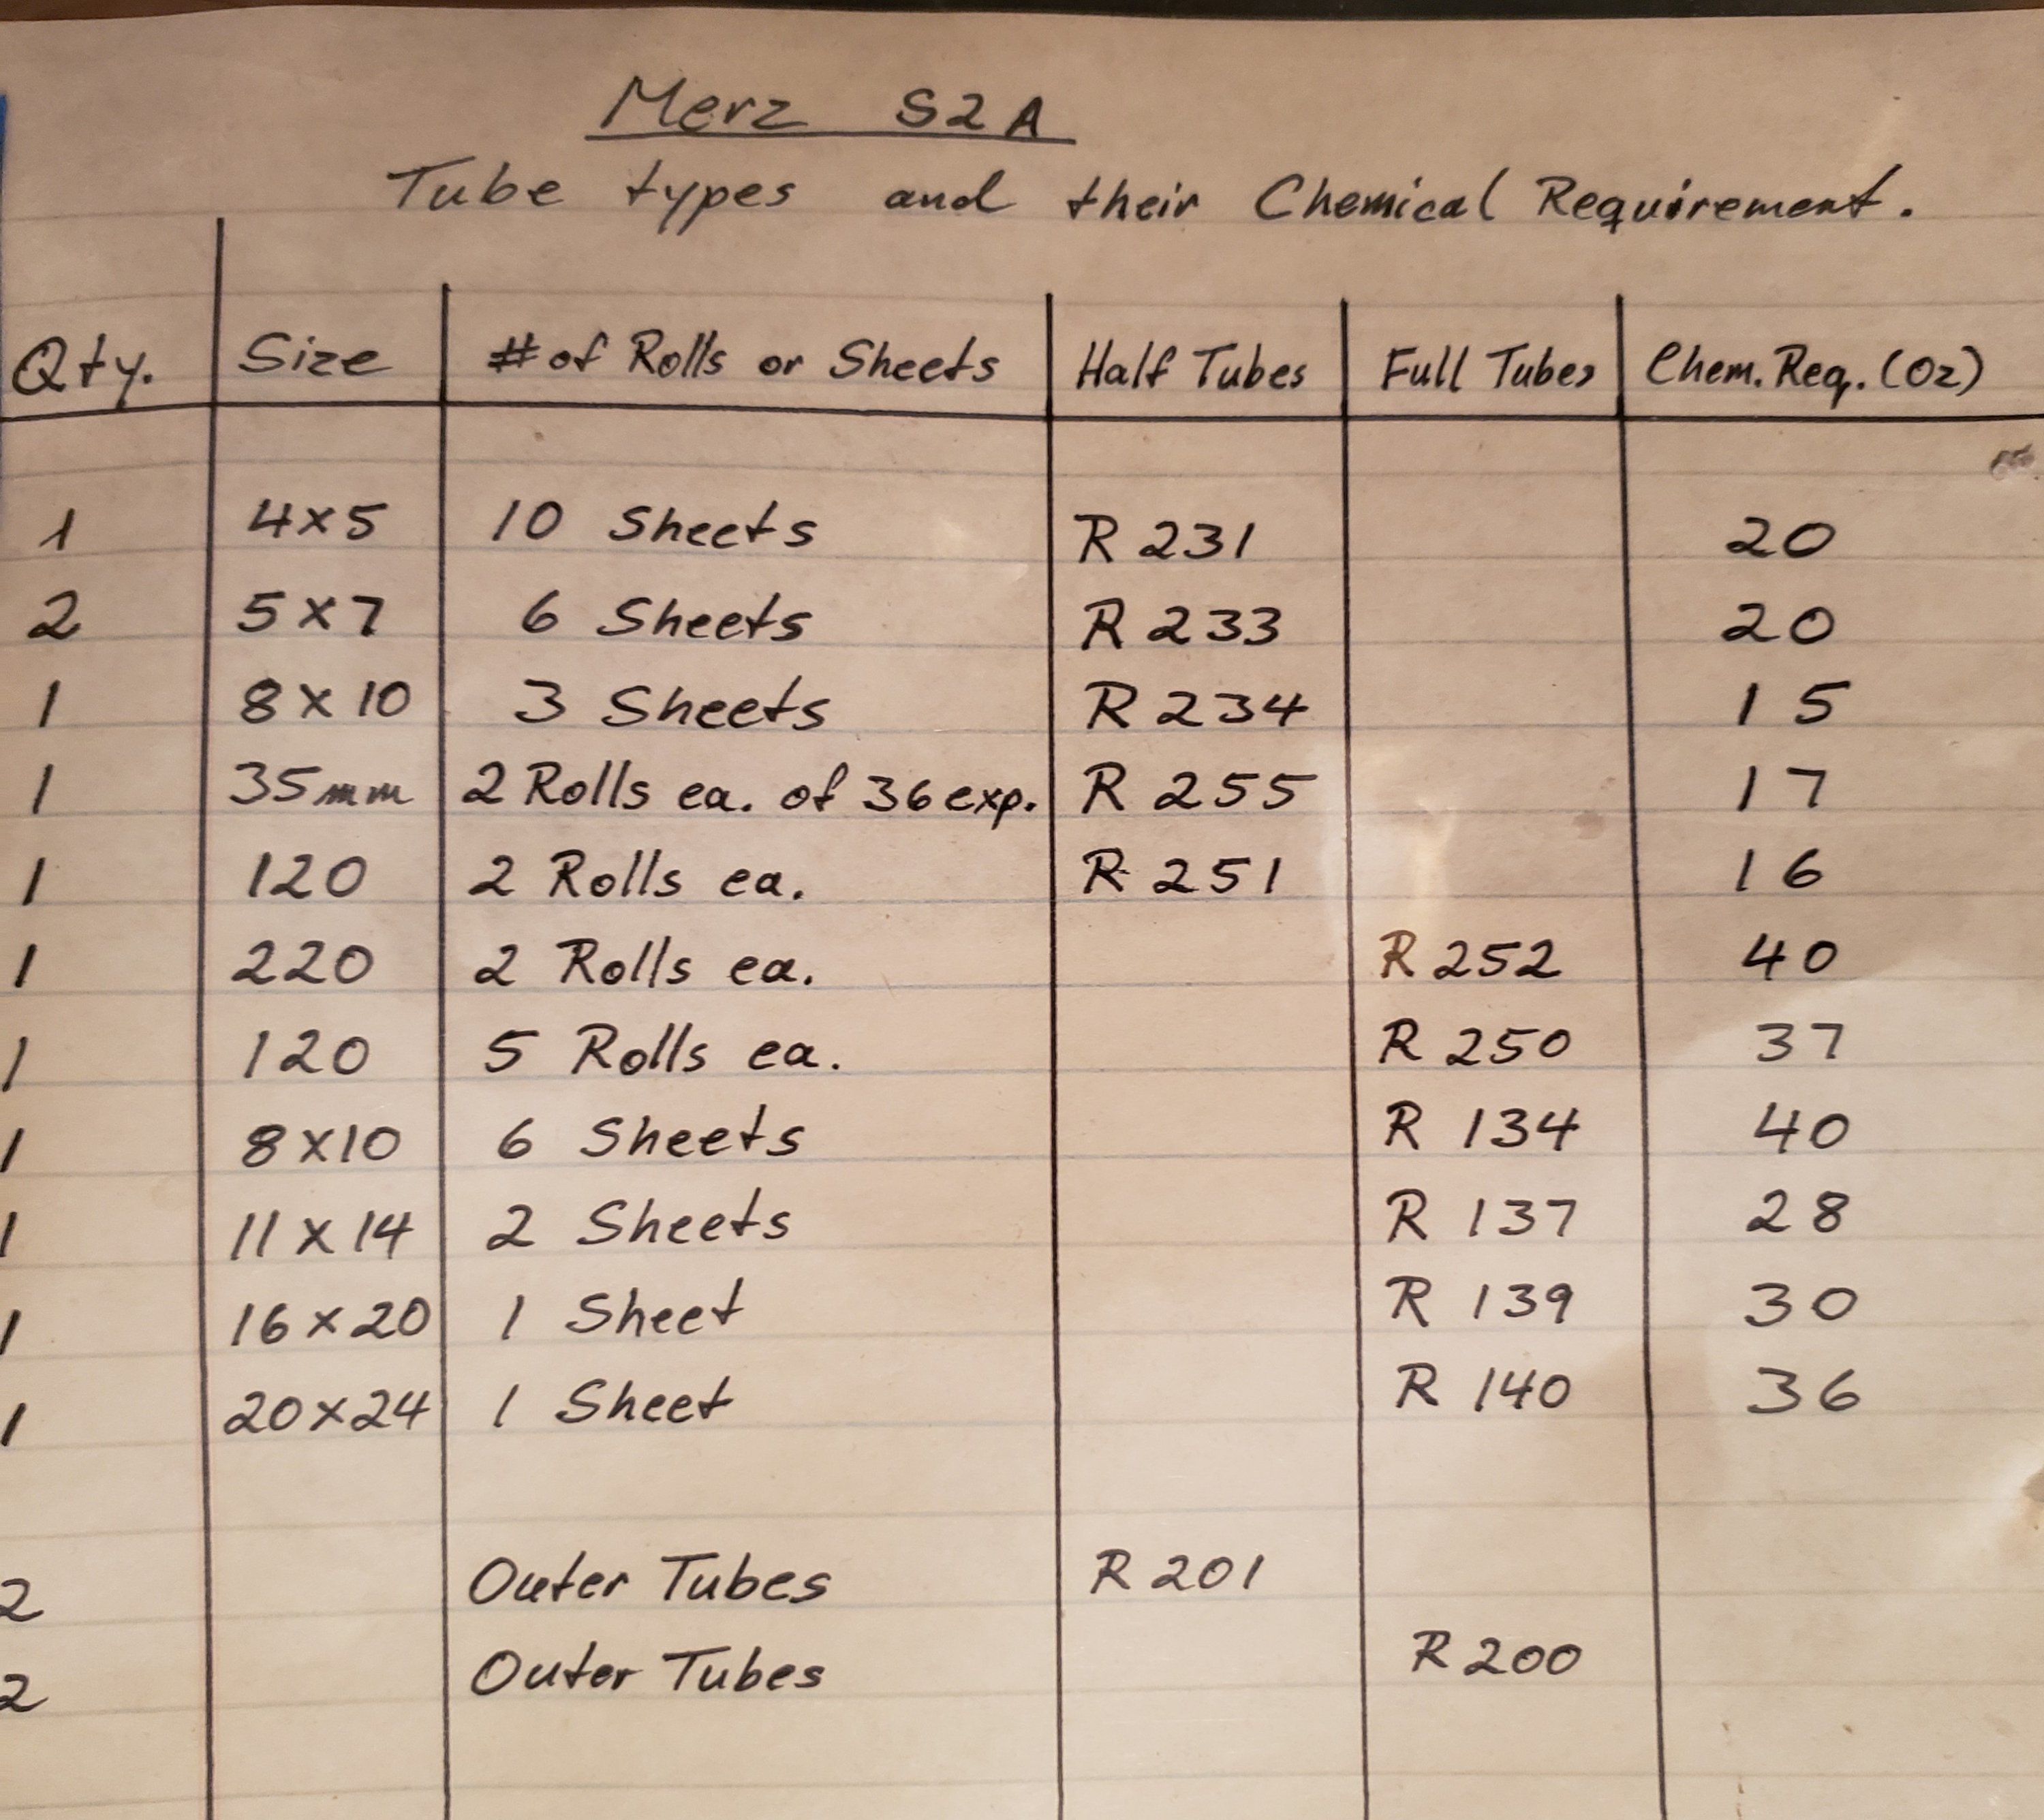 Merz S2A
Tube types and their Chemical Requirement.
Qty. Size # of Rolls or Sheets Half Tubes Full Tubes Chem. Req. (Oz)
1 4x5 10 Sheets R 231 20
2 5x7 6 Sheets R 233 20
1 8x10 3 Sheets R 234 15
1 35mm 2 Rolls ea. of 36 exp. R 255 17
1 120 2 Rolls ea. R 251 16
1 220 2 Rolls ea. R 252 40
1 120 5 Rolls ea. R 250 37
1 8x10 6 Sheets R 134 40
1 11x14 2 Sheets R 137 28
1 16x20 1 Sheet R 139 30
1 20x24 1 Sheet R 140 36
2 Outer Tubes R 201
2 Outer Tubes R 200